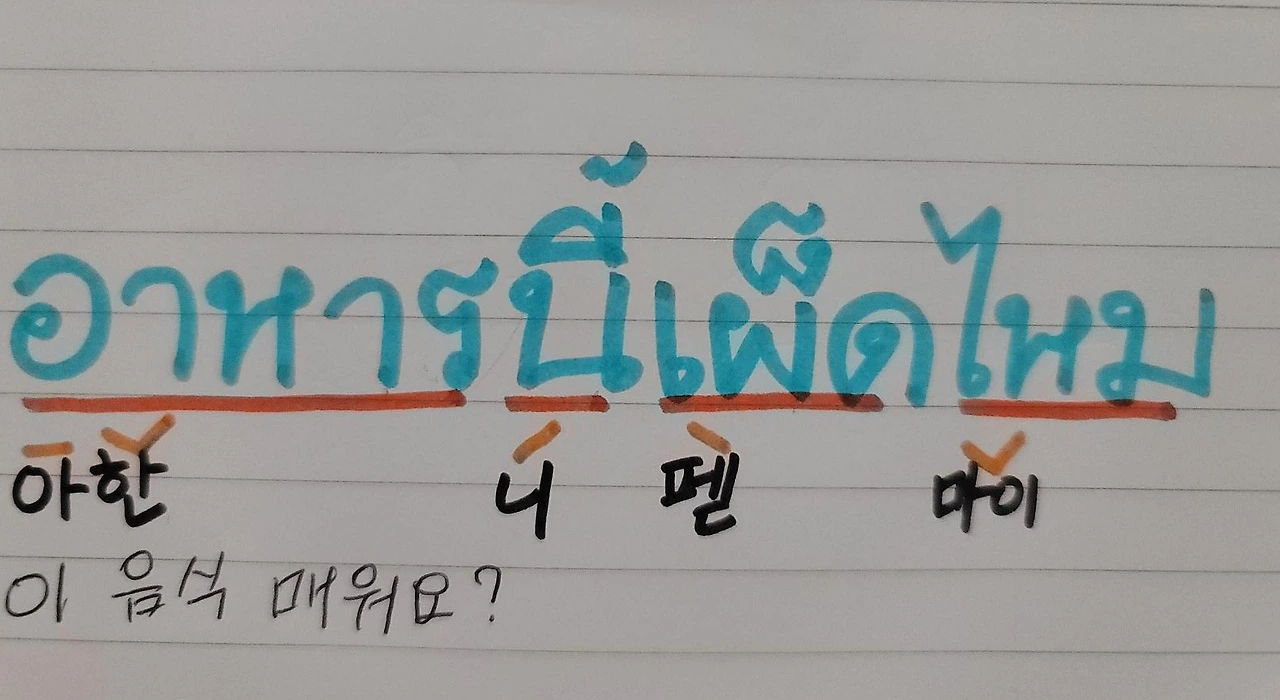 อาหารนี้เผ็ดไหม
아한 니 펟 마이
이 음식 매워요?